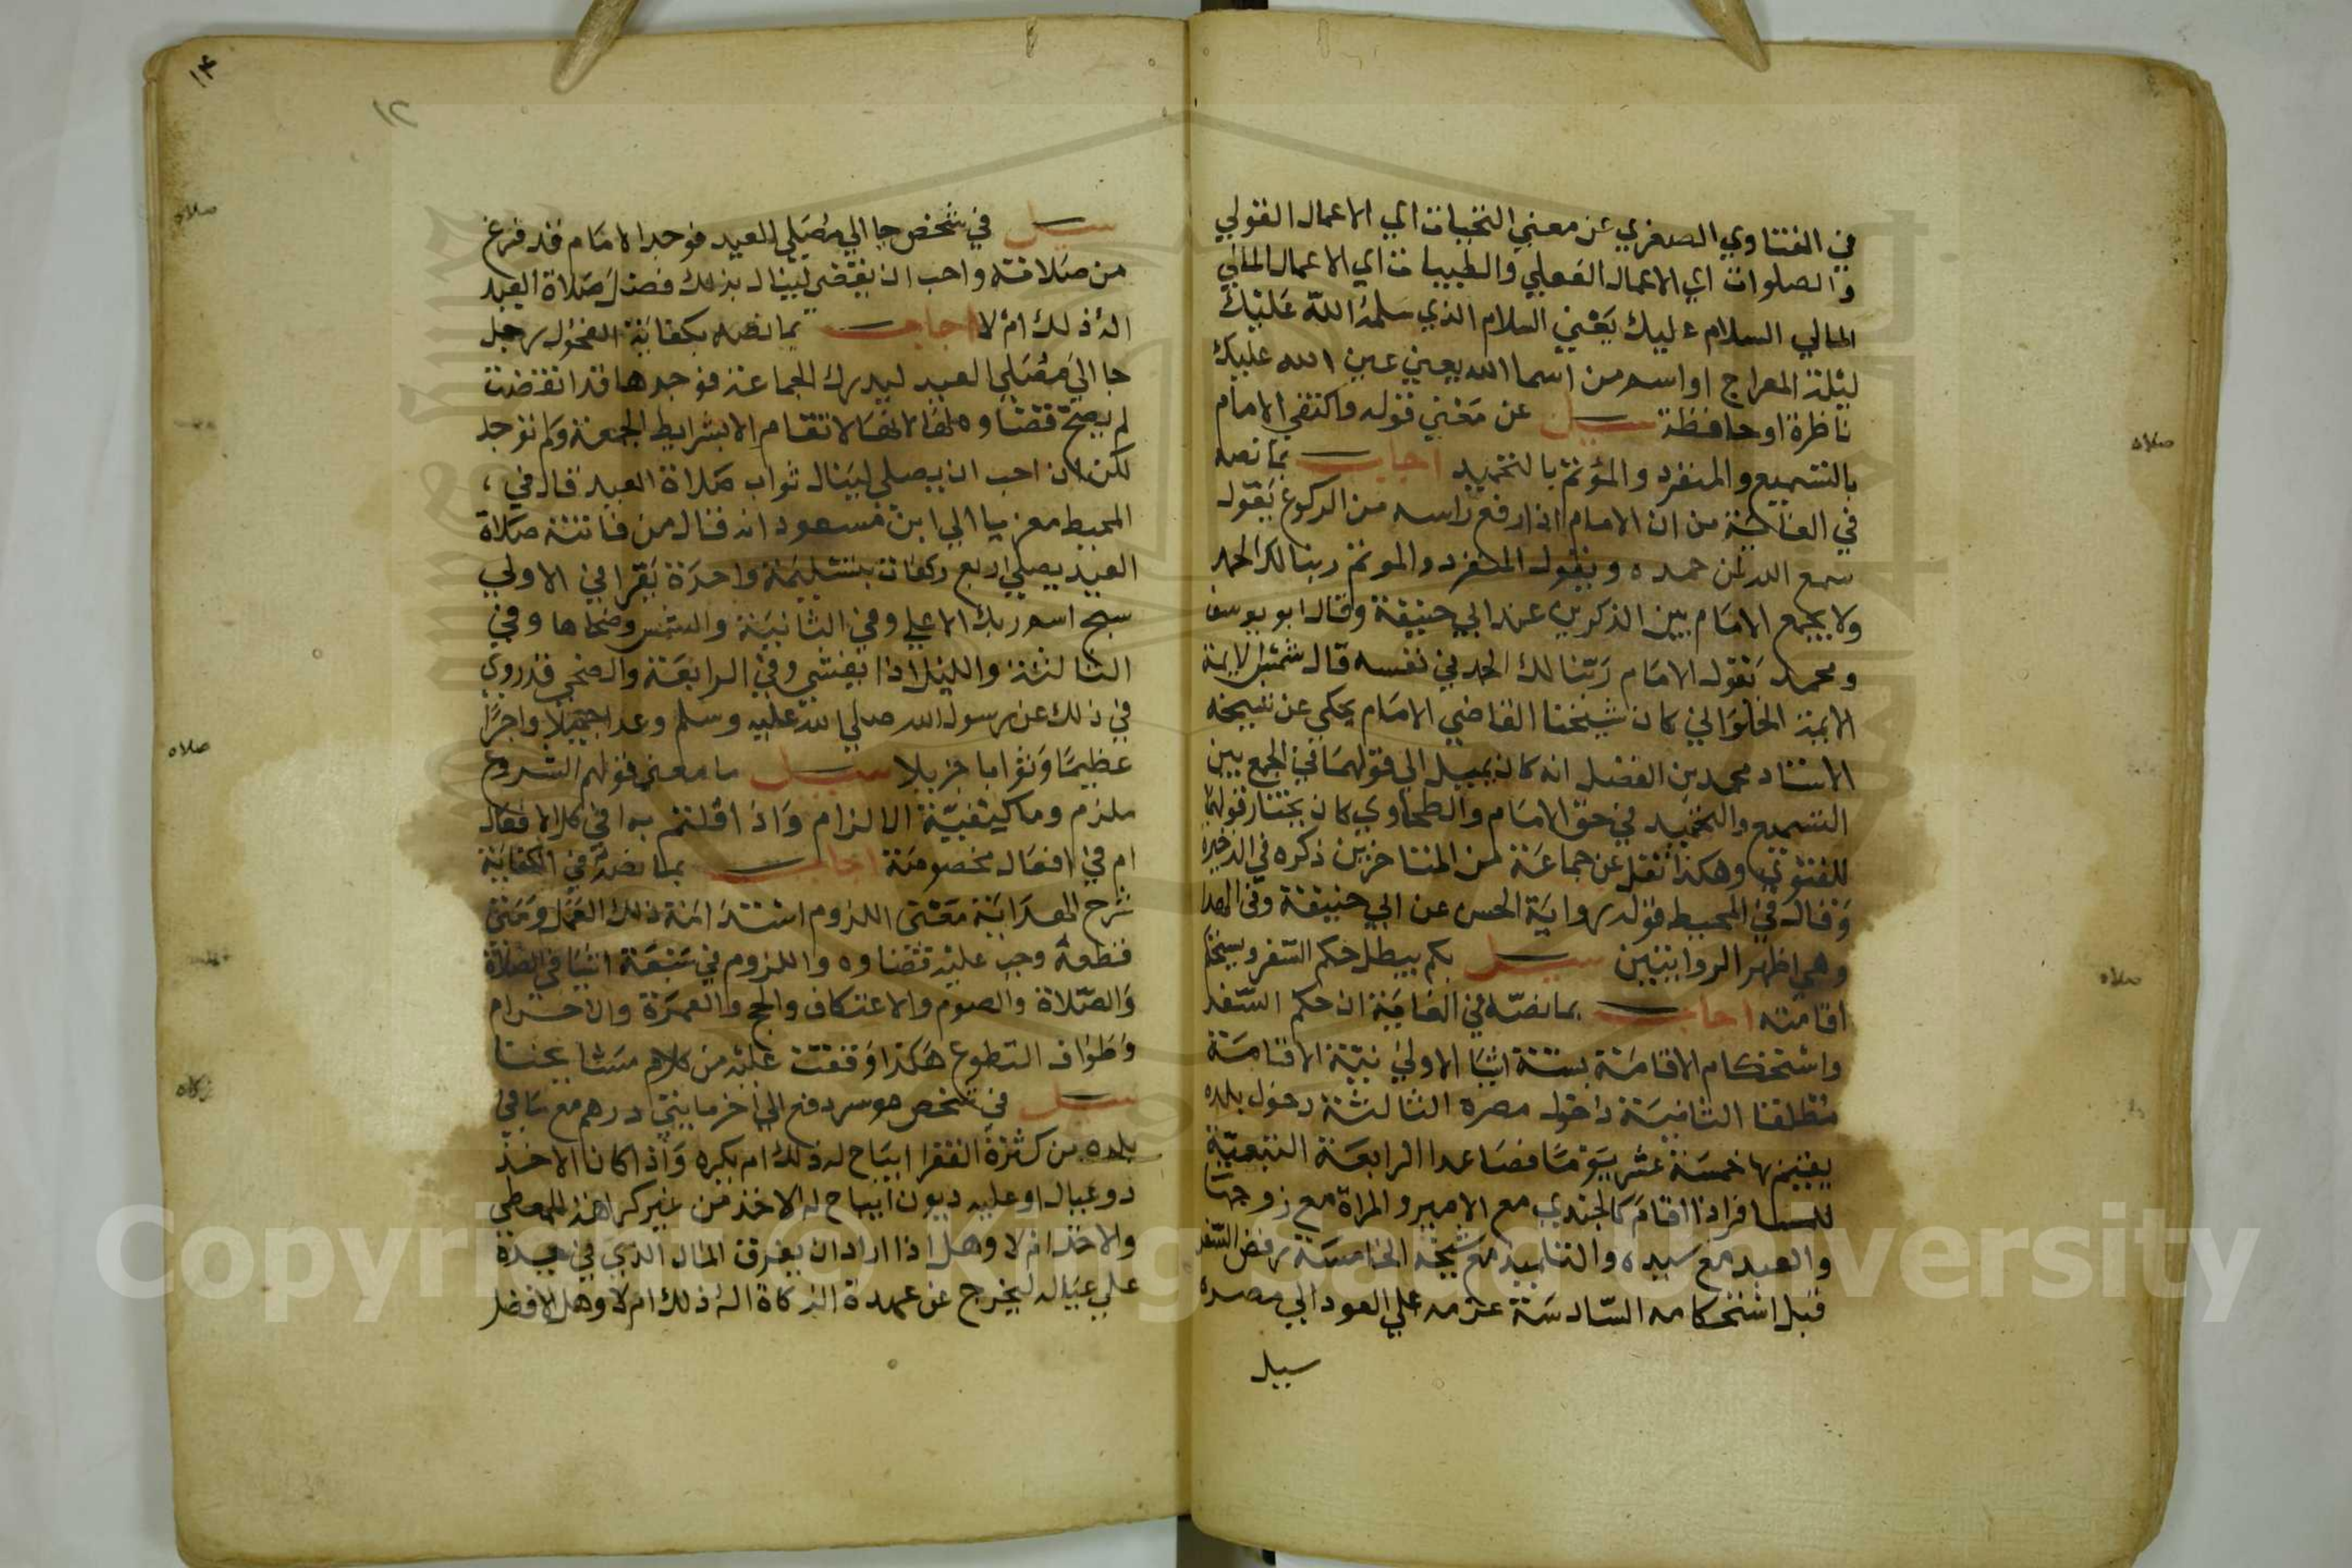 في الفتاوي الصغري عن معني التحيات اي الاعمال القولي
والصلوات اي الاعمال الفعلي والطيبات اي الاعمال المالي
المالي السلام عليك يعني السلام الذي سلمه الله عليك
ليلة المعراج او اسم من اسما الله يعني عين الله عليك
ناظرة او حافظة سيل عن معني قوله واكتفي الامام
بالتسميع والمنفرد والمؤتم بالتحميد اجاب بما نصه
في من ان الامام اذا رفع راسه من الركوع يقول
سمع الله لمن حمده ويقول المنفرد والموتم ربنا لك الحمد
ولا يجمع الامام بين الذكرين عند ابي حنيفة وقال ابو يوسف
ومحمد يقول الامام ربنا لك الحمد في نفسه قال شمس الايمة
الايمة الحلواني كان شيخنا القاضي الامام يحكي عن شيخه
الاستاد محمد بن الفضل انه كان يميل الي قولهما في الجمع بين
التسميع والتحميد في حق الامام والطحاوي كان يختار قولهما
للفتوي وهكذا نقل عن جماعة من المتاخرين ذكره في الذخيره
وقال في المحيط قوله رواية الحسن عن ابي حنيفة وفي
وهي اظهر الروايتين سيل بكم يبطل حكم السفر
اقامته اجاب بما نصه في ان حكم السفر
واستحكام الاقامة بستة اشيا الاولي نية الاقامة
مطلقا الثانية داخول مصره الثالثة دخول بلده
يقيم بها خمسة عشر يوما فصاعدا الرابعة التبعية
للمسافر اذا اقام كالجندي مع الامير والمراة مع زوجها
والعبد مع سيده والتلميذ مع شيخه الخامسة رفض السفر
قبل استحكامه السادسة عزمه علي العود الي مصره
سيل
صلاه
صلاه
١٤
١٢
سيل في شخص جا الي مصلي العيد فوجد الامام قد فرغ
من صلاته واحب ان يقضي لينال بذلك فضل صلاة العيد
اله ذلك ام لا اجاب بما نصه بكفاية رجل
جا الي مصلي العيد ليدرك الجماعة فوجدها قد انقضت
لم يصح قضاوه لها لانها لا تقام الا بشرايط الجمعة ولم توجد
لكن ان احب ان يصلي لينال ثواب صلاة العيد قال في
المحيط معزيا الي ابن مسعود انه قال من فاتته صلاة
العيد يصلي اربع ركعات بتسليمة واحدة يقرا في الاولي
سبح اسم ربك الاعلي وفي الثانية والشمس وضحاها وفي
الثالثة والليل اذا يغشي وفي الرابعة والضحي قد روي
في ذلك عن رسول الله صلي الله عليه وسلم وعدا جميلا واجرا
عظيما وثوابا جزيلا سيل ما معني قولهم الشروع
ملزم وما كيفية الالزام واذا قلتم به افي كل الافعال
ام في افعال مخصوصة اجاب بما نصه في الكفاية
شرح الهداية معني اللزوم استدامة ذلك العمل ومتي
قطعه وجب عليه قضاوه واللزوم في سبعة اشيا في الصلاة
والصلاة والصوم والاعتكاف والحج والعمرة والاحرام
وطواف التطوع هكذا وقفت عليه من كلام مشايخنا
سيل في شخص موسر دفع الي اخر مايتي درهم مع ما في
بلده من كثرة الفقرا ايباح له ذلك ام يكره واذا كان الاخذ
ذو عيال او عليه ديون ايباح له الاخذ من غير كراهة للمعطي
والاخذ ام لا وهل اذا اراد ان يفرق المال الذي في يده
علي عياله ليخرج عن عهدة الزكاة اله ذلك ام لا وهل الافضل
صلاه
صلاه
زكاه
Copyright © King Saud University